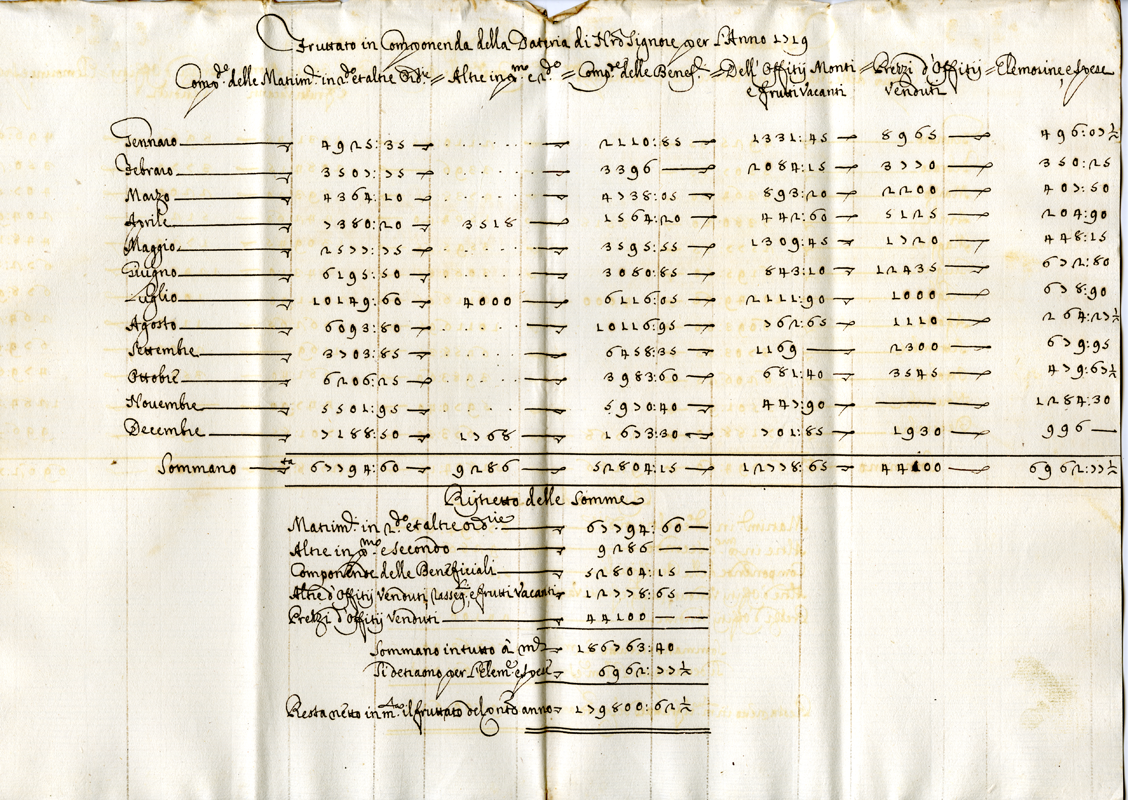 Fruttato in Componenda della Dataria di Nrõ Signore per l'Anno 1719
Compde delle Matrimli in 2do et altre Ordie = Altre in pmo e 2do = Compde delle Benefli = Dell' Offitij Monti e frutti Vacanti = Prezzi d'Offitij Venduti = Elemosine, e spese
Gennaro 4925:35 . . . . . 2110:85 1331:45 8965 496:07½
Febraro 3507:75 . . . . . 3396 — 2084:15 3770 350:25
Marzo 4364:10 . . . . . 4738:05 893:20 2200 407:50
Aprile 7380:20 3518 1564:20 442:60 5125 204:90
Maggio 2577:75 . . . . . 3595:55 1309:45 1720 448:15
Giugno 6195:50 . . . . . 3080:85 843:10 12435 672:80
Luglio 10149:60 4000 6116:05 2111:90 1000 678:90
Agosto 6093:80 . . . . . 10116:95 762:65 1110 264:27½
Settembre 3703:85 . . . . . 6458:35 1169 — 2300 679:95
Ottobre 6206:25 . . . . . 3983:60 681:40 3545 479:67½
Novembre 5501:95 . . . . . 5970:40 447:90 — 1284:30
Decembre 7188:50 1768 1673:30 701:85 1930 996 —
Sommano 67794:60 9286 52804:15 12778:65 44100 6962:77½
Ristretto delle Somme
Matrimli in 2do et altre ordrie 67794:60 —
Altre in pmo e secondo 9286 — —
Componende delle Beneficiali 52804:15 —
Altre d'Offitij Venduti, Rasseg, e frutti Vacanti 12778:65 —
Prezzi d'Offitij Venduti 44100 — —
Sommano in tutto à mta 186763:40
Si detraono per l'elemne e spese 6962:77½
Resta netto in mta il fruttato del anno 179800:62½